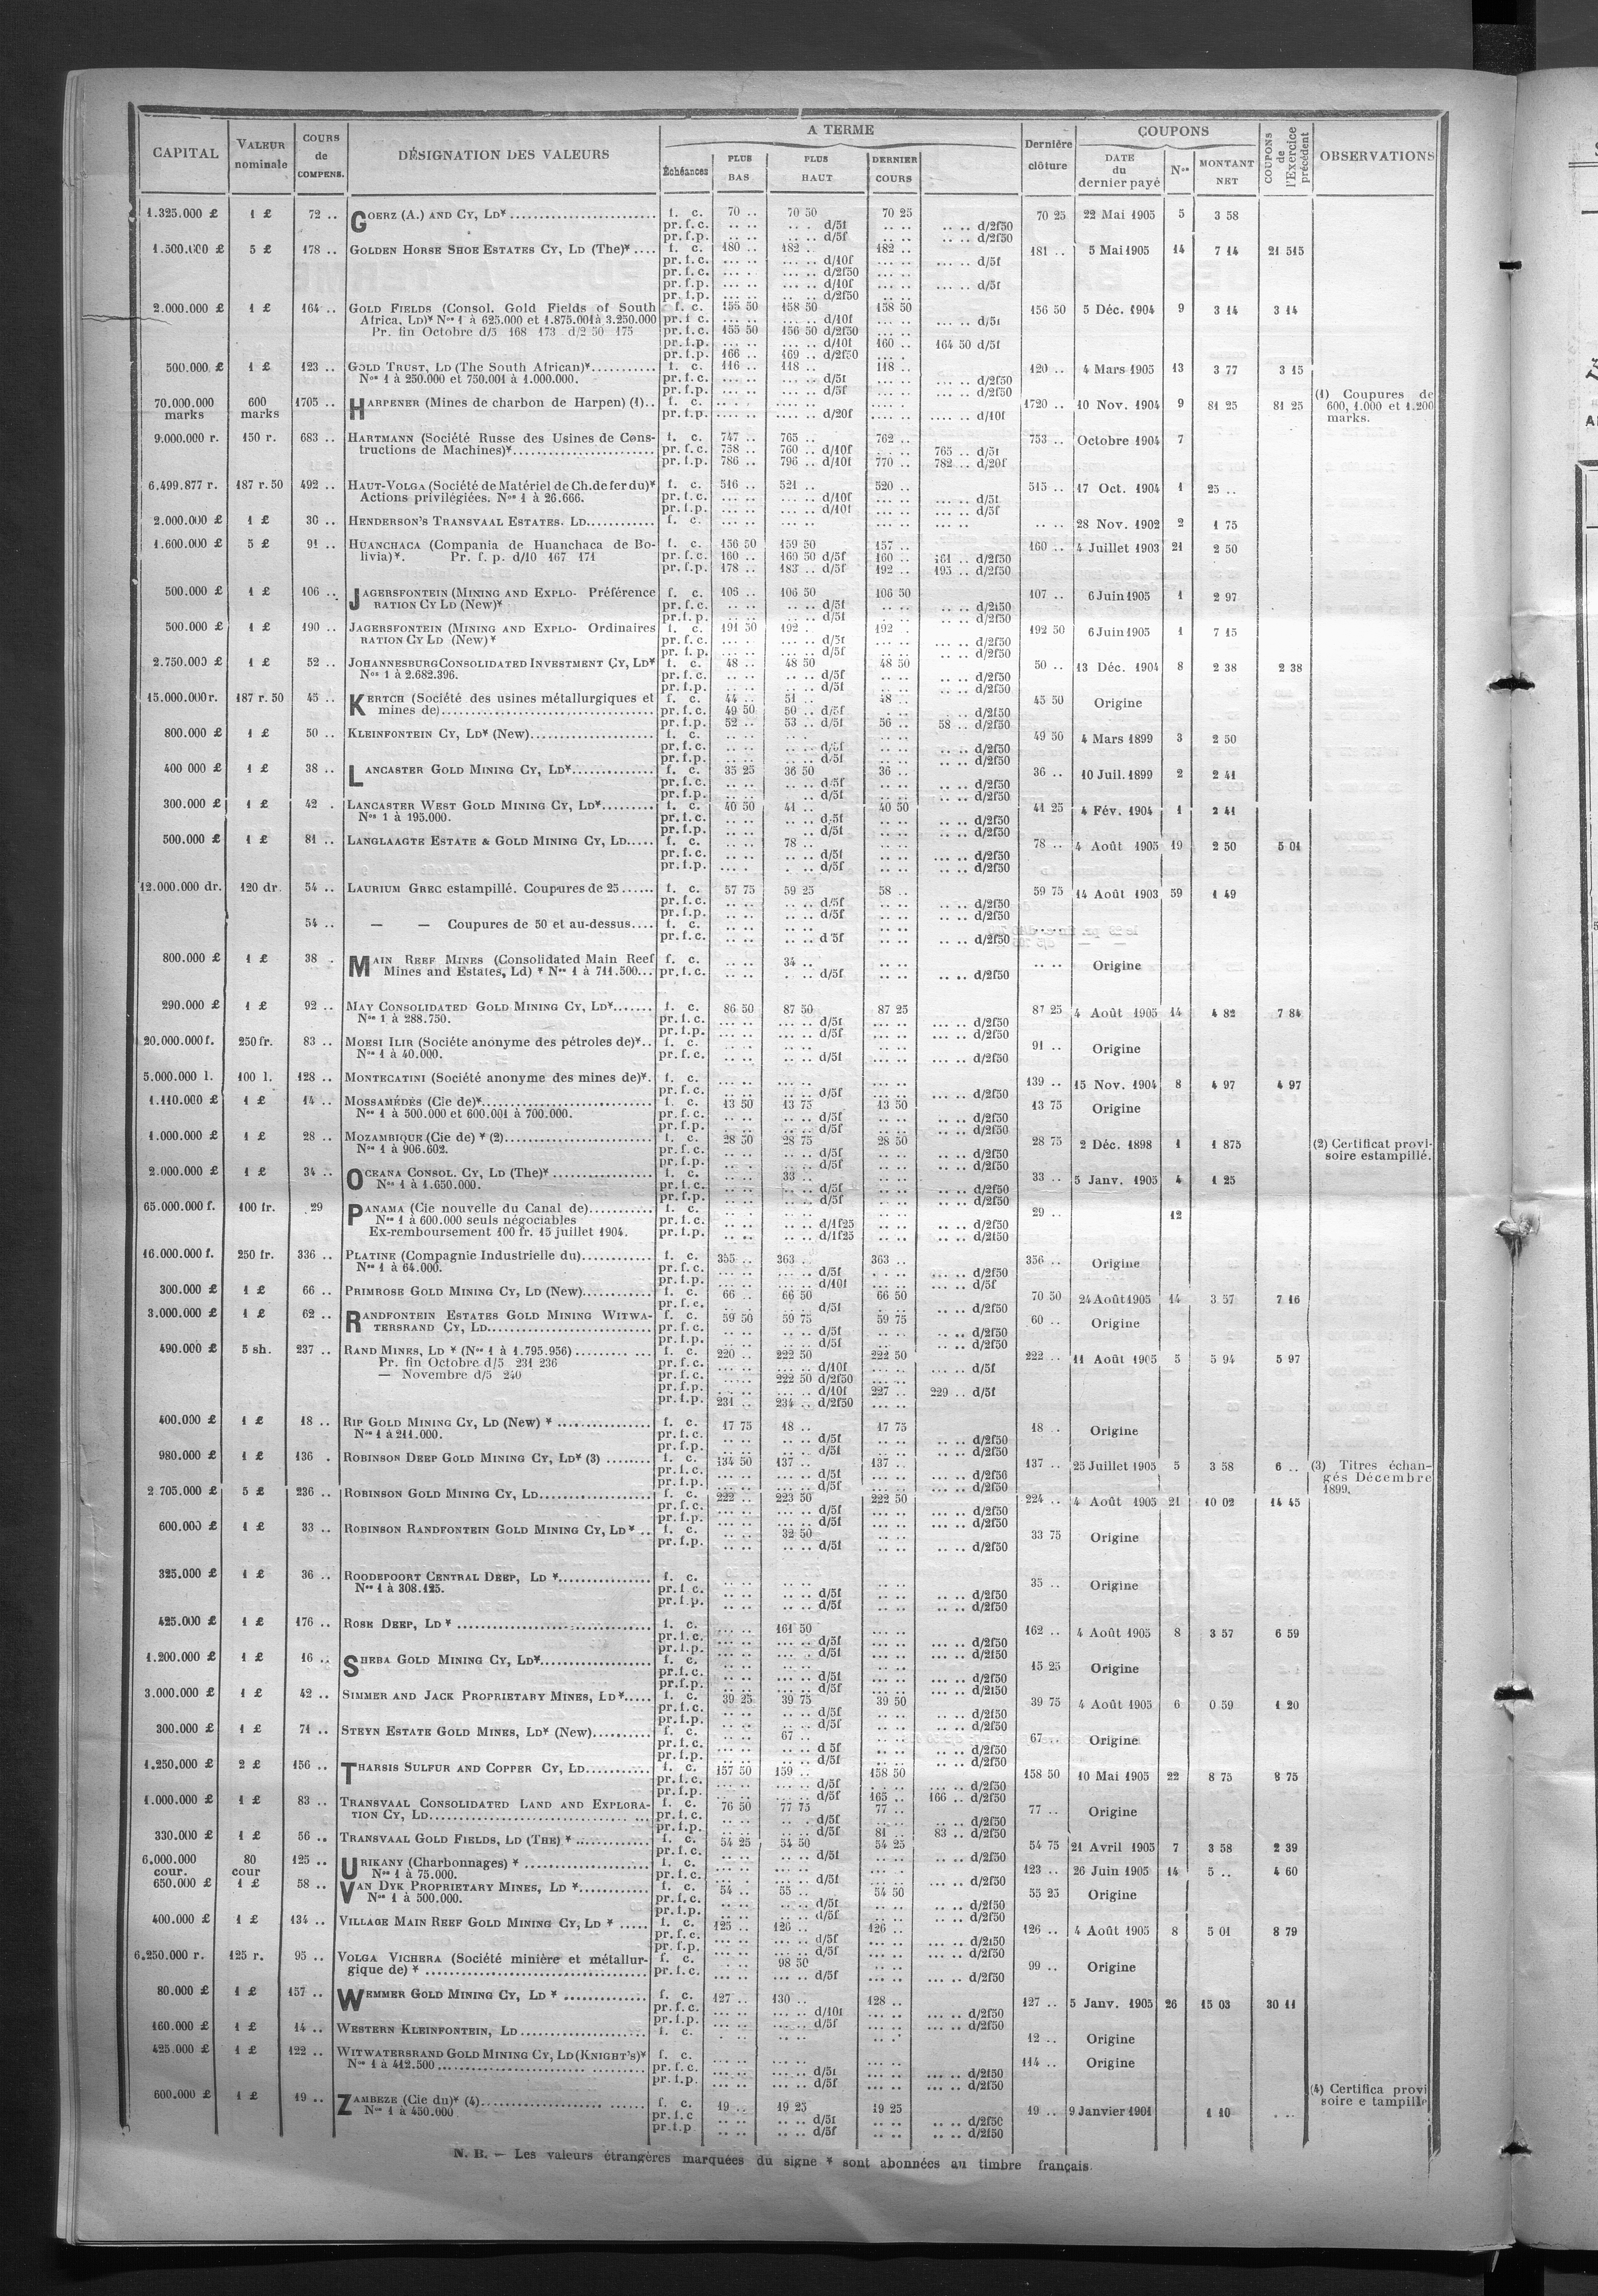 CAPITAL VALEUR nominale COURS de COMPENS. DÉSIGNATION DES VALEURS A TERME Échéances PLUS BAS PLUS HAUT DERNIER COURS Dernière clôture COUPONS DATE du dernier payé Nos MONTANT NET COUPONS de l'Exercice précédent OBSERVATIONS
1.325.000 £ 1 £ 72 .. GOERZ (A.) AND CY, LD* f. c. 70 .. 70 50 70 25 70 25 22 Mai 1905 5 3 58
pr. f. c. d/5f d/2f50
pr. f. p. d/5f d/2f50
1.500.000 £ 5 £ 178 .. GOLDEN HORSE SHOE ESTATES CY, LD (The)* f. c. 180 .. 182 .. 182 .. 181 .. 5 Mai 1905 14 7 14 21 515
pr. f. c. d/10f d/5f
pr. f. c. d/2f50
pr. f. p. d/10f d/5f
pr. f. p. d/2f50
2.000.000 £ 1 £ 164 .. GOLD FIELDS (Consol. Gold Fields of South f. c. 155 50 158 50 158 50 156 50 5 Déc. 1904 9 3 14 3 14
Africa, Ld)* Nos 1 à 625.000 et 1.875.001 à 3.250.000 pr. f. c. d/10f d/5f
Pr. fin Octobre d/5 168 173 d/2 50 175 pr. f. c. 155 50 156 50 d/2f50
pr. f. p. d/10f 160 .. 164 50 d/5f
pr. f. p. 166 .. 169 .. d/2f50
500.000 £ 1 £ 123 .. GOLD TRUST, LD (The South African)* f. c. 116 .. 118 .. 118 .. 120 .. 4 Mars 1905 13 3 77 3 15
Nos 1 à 250.000 et 750.001 à 1.000.000. pr. f. c. d/5f d/2f50
pr. f. p. d/5f d/2f50
70.000.000 marks 600 marks 1705 .. HARPENER (Mines de charbon de Harpen) (1) f. c. 1720 .. 10 Nov. 1904 9 81 25 81 25 (1) Coupures de 600, 1.000 et 1.200 marks.
pr. f. p. d/20f d/10f
9.000.000 r. 150 r. 683 .. HARTMANN (Société Russe des Usines de Cons- f. c. 747 .. 765 .. 762 .. 753 .. Octobre 1904 7
tructions de Machines)* pr. f. c. 758 .. 760 .. d/10f 765 .. d/5f
pr. f. p. 786 .. 796 .. d/10f 770 .. 782 .. d/20f
6.499.877 r. 187 r. 50 492 .. HAUT-VOLGA (Société de Matériel de Ch. de fer du)* f. c. 516 .. 521 .. 520 .. 515 .. 17 Oct. 1904 1 25 ..
Actions privilégiées. Nos 1 à 26.666. pr. f. c. d/10f d/5f
pr. f. p. d/10f d/5f
2.000.000 £ 1 £ 30 .. HENDERSON'S TRANSVAAL ESTATES. LD f. c. 28 Nov. 1902 2 1 75
1.600.000 £ 5 £ 91 .. HUANCHACA (Compania de Huanchaca de Bo- f. c. 156 50 159 50 157 .. 160 .. 4 Juillet 1903 21 2 50
livia)*. Pr. f. p. d/10 167 171 pr. f. c. 160 .. 160 50 d/5f 160 .. 161 .. d/2f50
pr. f. p. 178 .. 183 .. d/5f 192 .. 193 .. d/2f50
500.000 £ 1 £ 106 .. JAGERSFONTEIN (MINING AND EXPLO- Préférence f. c. 106 .. 106 50 106 50 107 .. 6 Juin 1905 1 2 97
RATION CY LD (New)* pr. f. c. d/5f d/2f50
pr. f. p. d/5f d/2f50
500.000 £ 1 £ 190 .. JAGERSFONTEIN (MINING AND EXPLO- Ordinaires f. c. 191 50 192 .. 192 .. 192 50 6 Juin 1905 1 7 15
RATION CY LD (New)* pr. f. c. d/5f d/2f50
pr. f. p. d/5f d/2f50
2.750.000 £ 1 £ 52 .. JOHANNESBURG CONSOLIDATED INVESTMENT CY, LD* f. c. 48 .. 48 50 48 50 50 .. 13 Déc. 1904 8 2 38 2 38
Nos 1 à 2.682.396. pr. f. c. d/5f d/2f50
pr. f. p. d/5f d/2f50
15.000.000 r. 187 r. 50 45 .. KERTCH (Société des usines métallurgiques et f. c. 44 .. 51 .. 48 .. 45 50 Origine
mines de) pr. f. c. 49 50 50 .. d/5f d/2f50
pr. f. p. 52 .. 53 .. d/5f 56 .. 58 .. d/2f50
800.000 £ 1 £ 50 .. KLEINFONTEIN CY, LD* (New) f. c. 49 50 4 Mars 1899 3 2 50
pr. f. c. d/5f d/2f50
pr. f. p. d/5f d/2f50
400 000 £ 1 £ 38 .. LANCASTER GOLD MINING CY, LD* f. c. 35 25 36 50 36 .. 36 .. 10 Juil. 1899 2 2 41
pr. f. c. d/5f d/2f50
pr. f. p. d/5f d/2f50
300.000 £ 1 £ 42 . LANCASTER WEST GOLD MINING CY, LD* f. c. 40 50 41 .. 40 50 41 25 4 Fév. 1904 1 2 41
Nos 1 à 195.000. pr. f. c. d/5f d/2f50
pr. f. p. d/5f d/2f50
500.000 £ 1 £ 81 .. LANGLAAGTE ESTATE & GOLD MINING CY, LD f. c. 78 .. 78 .. 4 Août 1905 19 2 50 5 01
pr. f. c. d/5f d/2f50
pr. f. p. d/5f d/2f50
12.000.000 dr. 120 dr. 54 .. LAURIUM GREC estampillé. Coupures de 25 f. c. 57 75 59 25 58 .. 59 75 14 Août 1903 59 1 49
pr. f. c. d/5f d/2f50
pr. f. p. d/5f d/2f50
54 .. — — Coupures de 50 et au-dessus f. c.
pr. f. c. d 5f d/2f50
800.000 £ 1 £ 38 . MAIN REEF MINES (Consolidated Main Reef f. c. 34 .. Origine
Mines and Estates, Ld) * Nos 1 à 711.500 pr. f. c. d/5f d/2f50
290.000 £ 1 £ 92 .. MAY CONSOLIDATED GOLD MINING CY, LD* f. c. 86 50 87 50 87 25 87 25 4 Août 1905 14 4 82 7 84
Nos 1 à 288.750. pr. f. c. d/5f d/2f50
pr. f. p. d/5f d/2f50
20.000.000 f. 250 fr. 83 .. MOESI ILIR (Sociéte anonyme des pétroles de)* f. c. 91 .. Origine
Nos 1 à 40.000. pr. f. c. d/5f d/2f50
5.000.000 l. 100 l. 128 .. MONTECATINI (Société anonyme des mines de)* f. c. 139 .. 15 Nov. 1904 8 4 97 4 97
pr. f. c. d/5f d/2f50
1.110.000 £ 1 £ 14 .. MOSSAMÉDÈS (Cie de)* f. c. 13 50 13 75 13 50 13 75 Origine
Nos 1 à 500.000 et 600.001 à 700.000. pr. f. c. d/5f d/2f50
pr. f. p. d/5f d/2f50
1.000.000 £ 1 £ 28 .. MOZAMBIQUE (Cie de) * (2) f. c. 28 50 28 75 28 50 28 75 2 Déc. 1898 1 1 875 (2) Certificat provi-soire estampillé.
Nos 1 à 906.602. pr. f. c. d/5f d/2f50
pr. f. p. d/5f d/2f50
2.000.000 £ 1 £ 34 .. OCEANA CONSOL. CY, LD (The)* f. c. 33 .. 33 .. 5 Janv. 1905 4 1 25
Nos 1 à 1.650.000. pr. f. c. d/5f d/2f50
pr. f. p. d/5f d/2f50
65.000.000 f. 100 fr. 29 PANAMA (Cie nouvelle du Canal de) f. c. 29 .. 12
Nos 1 à 600.000 seuls négociables pr. f. c. d/1f25 d/2f50
Ex-remboursement 100 fr. 15 juillet 1904. pr. f. p. d/1f25 d/2f50
16.000.000 f. 250 fr. 336 .. PLATINE (Compagnie Industrielle du) f. c. 355 .. 363 .. 363 .. 356 .. Origine
Nos 1 à 64.000. pr. f. c. d/5f d/2f50
pr. f. p. d/10f d/5f
300.000 £ 1 £ 66 .. PRIMROSE GOLD MINING CY, LD (New) f. c. 66 .. 66 50 66 50 70 50 24 Août 1905 14 3 57 7 16
pr. f. c. d/5f d/2f50
3.000.000 £ 1 £ 62 .. RANDFONTEIN ESTATES GOLD MINING WITWA- f. c. 59 50 59 75 59 75 60 .. Origine
TERSRAND CY, LD pr. f. c. d/5f d/2f50
pr. f. p. d/5f d/2f50
490.000 £ 5 sh. 237 .. RAND MINES, LD * (Nos 1 à 1.795.956) f. c. 220 .. 222 50 222 50 222 .. 11 Août 1905 5 5 94 5 97
Pr. fin Octobre d/5 231 236 pr. f. c. d/10f d/5f
— Novembre d/5 240 pr. f. c. 222 50 d/2f50
pr. f. p. d/10f 227 .. 229 .. d/5f
pr. f. p. 231 .. 234 .. d/2f50
400.000 £ 1 £ 18 .. RIP GOLD MINING CY, LD (New) * f. c. 17 75 18 .. 17 75 18 .. Origine
Nos 1 à 211.000. pr. f. c. d/5f d/2f50
pr. f. p. d/5f d/2f50
980.000 £ 1 £ 136 . ROBINSON DEEP GOLD MINING CY, LD* (3) f. c. 134 50 137 .. 137 .. 137 .. 25 Juillet 1905 5 3 58 6 .. (3) Titres échan-gés Décembre 1899.
pr. f. c. d/5f d/2f50
pr. f. p. d/5f d/2f50
2 705.000 £ 5 £ 236 .. ROBINSON GOLD MINING CY, LD f. c. 222 .. 223 50 222 50 224 .. 4 Août 1905 21 10 02 14 45
pr. f. c. d/5f d/2f50
pr. f. p. d/5f d/2f50
600.000 £ 1 £ 33 .. ROBINSON RANDFONTEIN GOLD MINING CY, LD* f. c. 32 50 33 75 Origine
pr. f. p. d/5f d/2f50
325.000 £ 1 £ 36 .. ROODEPOORT CENTRAL DEEP, LD * f. c. 35 .. Origine
Nos 1 à 308.125. pr. f. c. d/5f d/2f50
pr. f. p. d/5f d/2f50
425.000 £ 1 £ 176 .. ROSE DEEP, LD * f. c. 161 50 162 .. 4 Août 1905 8 3 57 6 59
pr. f. c. d/5f d/2f50
pr. f. p. d/5f d/2f50
1.200.000 £ 1 £ 16 .. SHEBA GOLD MINING CY, LD* f. c. 15 25 Origine
pr. f. c. d/5f d/2f50
pr. f. p. d/5f d/2f50
3.000.000 £ 1 £ 42 .. SIMMER AND JACK PROPRIETARY MINES, LD* f. c. 39 25 39 75 39 50 39 75 4 Août 1905 6 0 59 1 20
pr. f. c. d/5f d/2f50
pr. f. p. d/5f d/2f50
300.000 £ 1 £ 71 .. STEYN ESTATE GOLD MINES, LD* (New) f. c. 67 .. 67 .. Origine
pr. f. c. d 5f d/2f50
pr. f. p. d/5f d/2f50
1.250.000 £ 2 £ 156 .. THARSIS SULFUR AND COPPER CY, LD f. c. 157 50 159 .. 158 50 158 50 10 Mai 1905 22 8 75 8 75
pr. f. c. d/5f d/2f50
pr. f. p. d/5f 165 .. 166 .. d/2f50
1.000.000 £ 1 £ 83 .. TRANSVAAL CONSOLIDATED LAND AND EXPLORA- f. c. 76 50 77 75 77 .. 77 .. Origine
TION CY, LD pr. f. c. d/5f d/2f50
pr. f. p. d/5f 81 .. 83 .. d/2f50
330.000 £ 1 £ 56 .. TRANSVAAL GOLD FIELDS, LD (THE) * f. c. 54 25 54 50 54 25 54 75 21 Avril 1905 7 3 58 2 39
pr. f. c. d/5f d/2f50
6.000.000 cour. 80 cour 125 .. URIKANY (Charbonnages) * f. c. 123 .. 26 Juin 1905 14 5 .. 4 60
Nos 1 à 75.000. pr. f. c. d/5f d/2f50
650.000 £ 1 £ 58 .. VAN DYK PROPRIETARY MINES, LD * f. c. 54 .. 55 .. 54 50 55 25 Origine
Nos 1 à 500.000. pr. f. c. d/5f d/2f50
pr. f. p. d/5f d/2f50
400.000 £ 1 £ 134 .. VILLAGE MAIN REEF GOLD MINING CY, LD * f. c. 125 .. 126 .. 126 .. 126 .. 4 Août 1905 8 5 01 8 79
pr. f. c. d/5f d/2f50
pr. f. p. d/5f d/2f50
6.250.000 r. 125 r. 95 .. VOLGA VICHERA (Société minière et métallur- f. c. 98 50 99 .. Origine
gique de) * pr. f. c. d/5f d/2f50
80.000 £ 1 £ 157 .. WEMMER GOLD MINING CY, LD * f. c. 127 .. 130 .. 128 .. 127 .. 5 Janv. 1905 26 15 03 30 11
pr. f. c. d/10f d/2f50
pr. f. p. d/5f d/2f50
160.000 £ 1 £ 14 .. WESTERN KLEINFONTEIN, LD f. c. 12 .. Origine
425.000 £ 1 £ 122 .. WITWATERSRAND GOLD MINING CY, LD (KNIGHT'S)* f. c. 114 .. Origine
Nos 1 à 412.500 pr. f. c. d/5f d/2f50
pr. f. p. d/5f d/2f50
600.000 £ 1 £ 19 .. ZAMBEZE (Cie du)* (4) f. c. 19 .. 19 25 19 25 19 .. 9 Janvier 1901 1 10 (4) Certifica provi soire e tampillé
Nos 1 à 450.000 pr. f. c d/5f d/2f50
pr. f. p d/5f d/2f50
N. B. — Les valeurs étrangères marquées du signe * sont abonnées au timbre français.